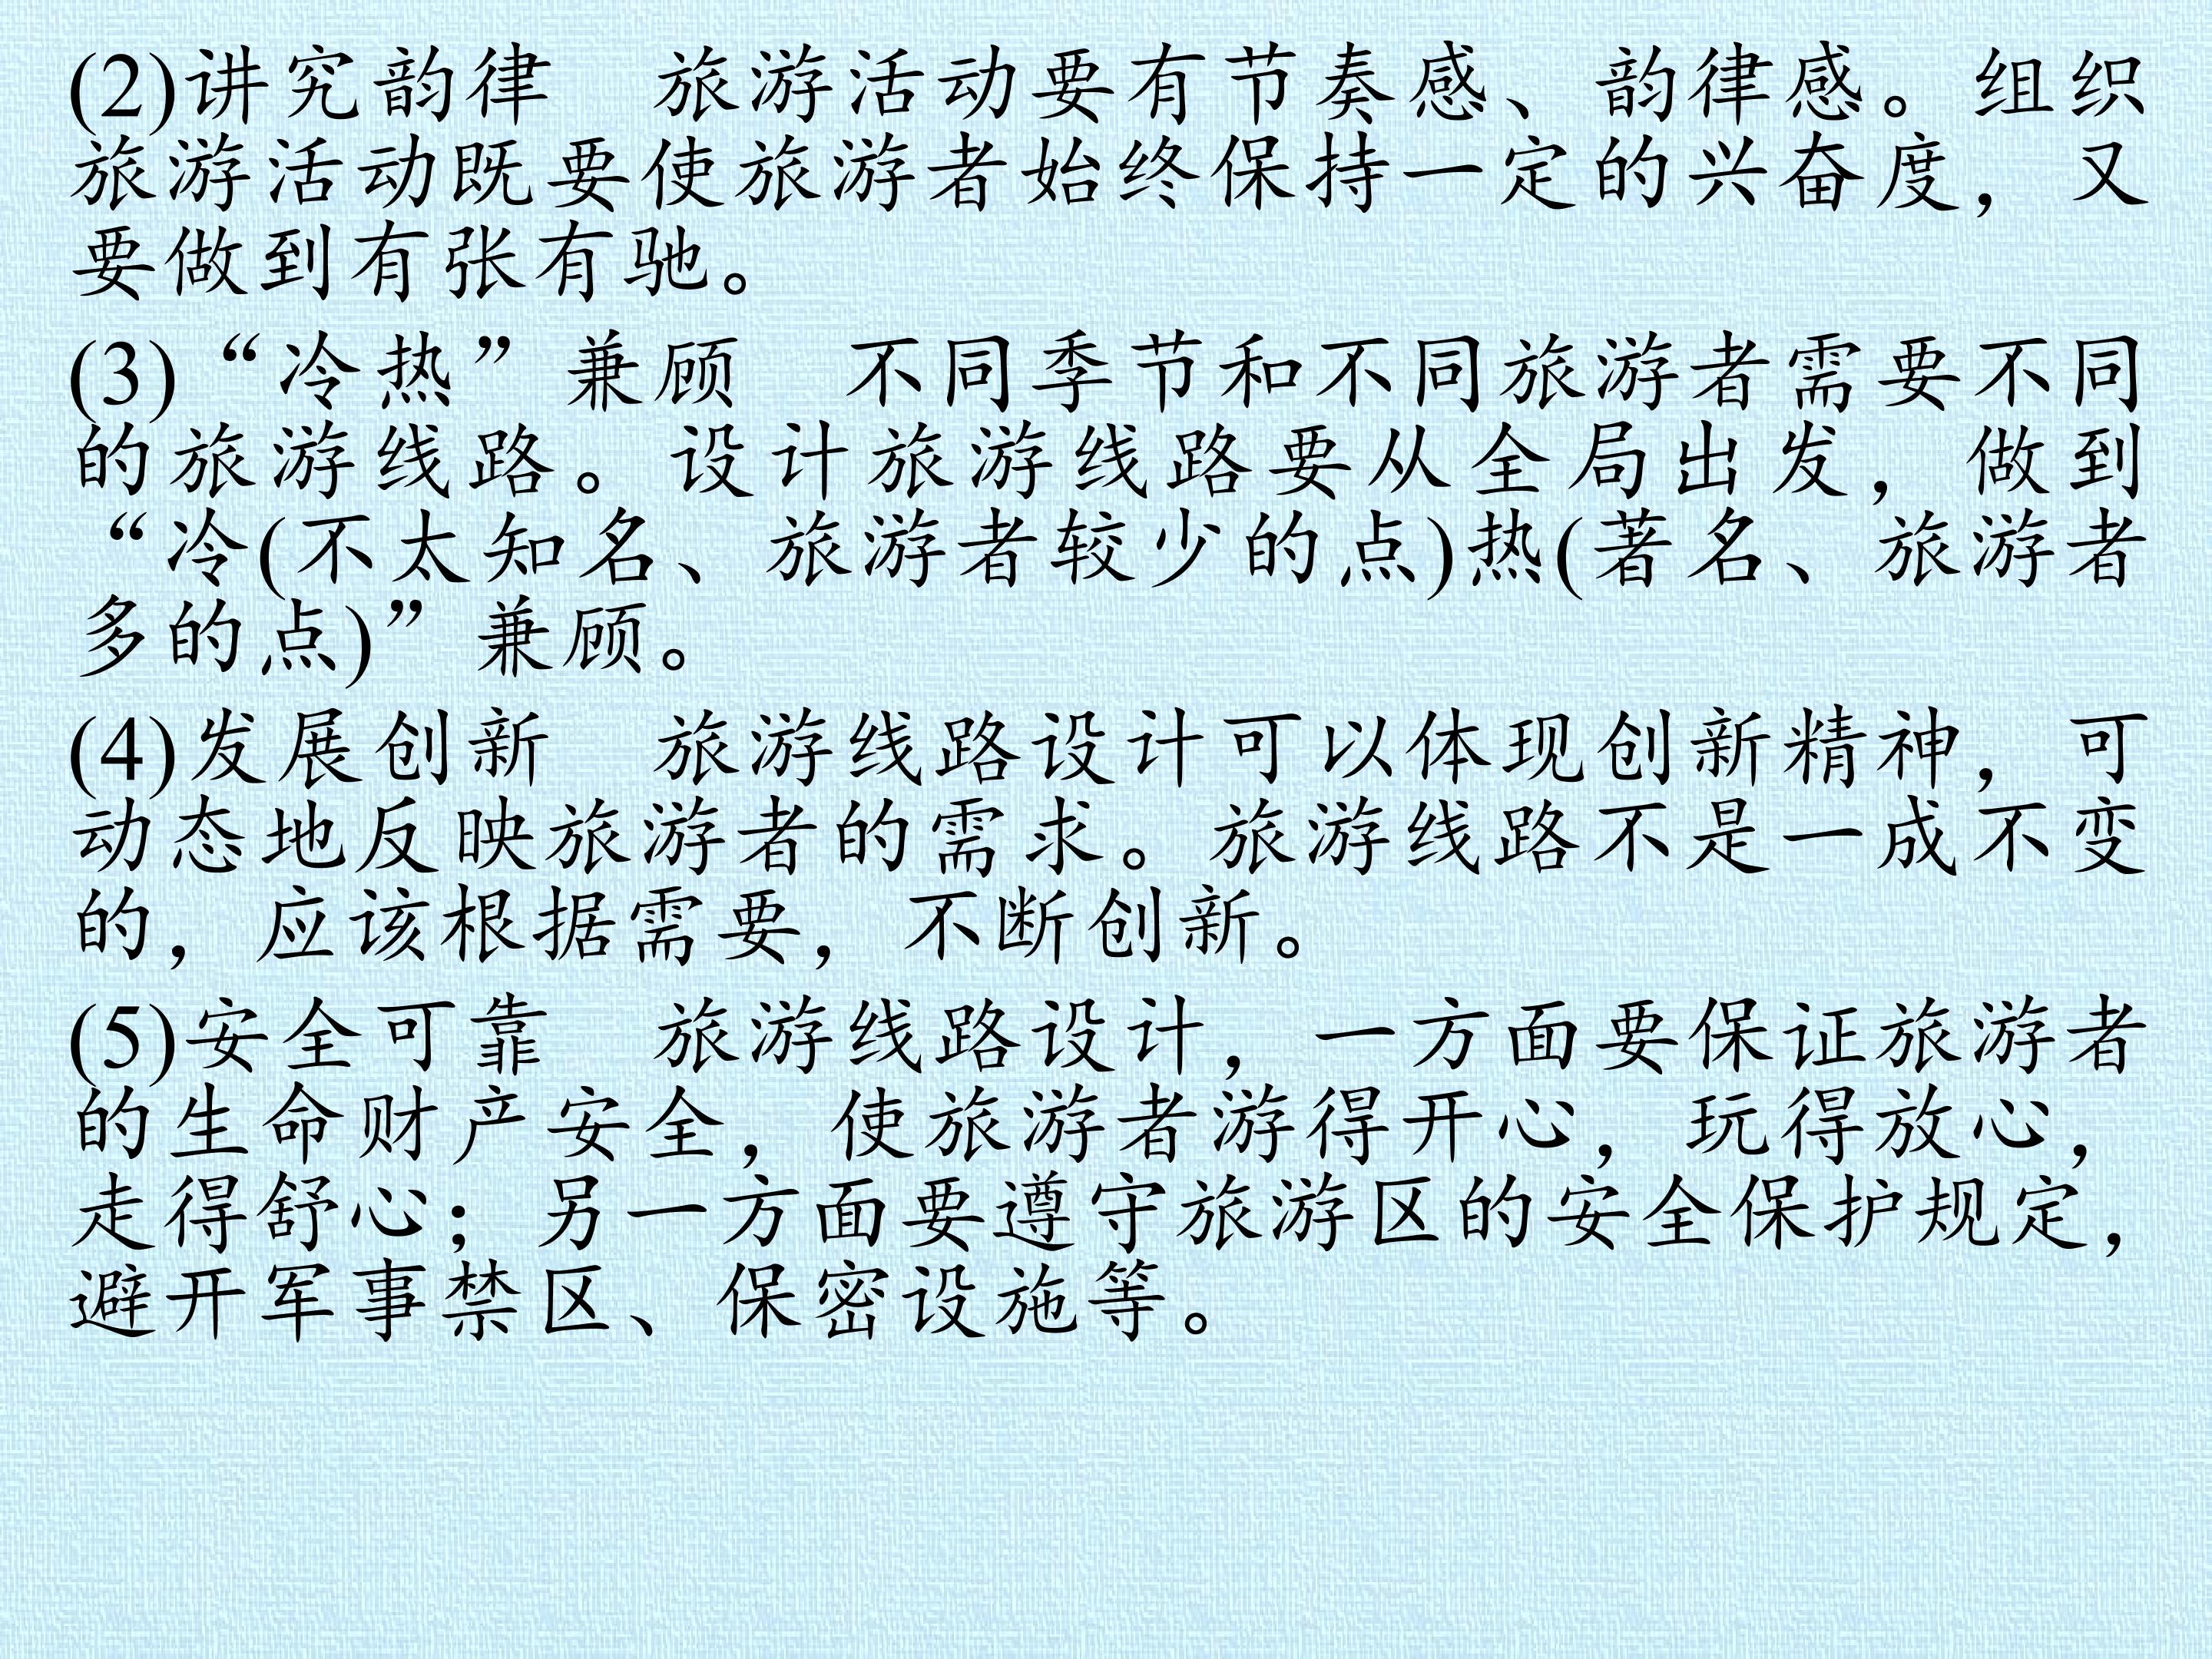 (2)讲究韵律　旅游活动要有节奏感、韵律感。组织
旅游活动既要使旅游者始终保持一定的兴奋度，又
要做到有张有驰。
(3)“冷热”兼顾　不同季节和不同旅游者需要不同
的旅游线路。设计旅游线路要从全局出发，做到
“冷(不太知名、旅游者较少的点)热(著名、旅游者
多的点)”兼顾。
(4)发展创新　旅游线路设计可以体现创新精神，可
动态地反映旅游者的需求。旅游线路不是一成不变
的，应该根据需要，不断创新。
(5)安全可靠　旅游线路设计，一方面要保证旅游者
的生命财产安全，使旅游者游得开心，玩得放心，
走得舒心；另一方面要遵守旅游区的安全保护规定，
避开军事禁区、保密设施等。